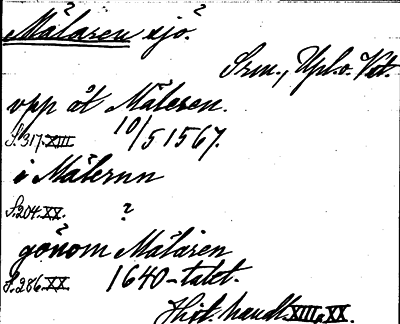 Mälaren sjö.
Srm., Upl. o. Vstm.
vpp åt Mäleren.
S. 317. XIII 10/5 1567.
i Mälernn
S. 204. XX. ?
gönom Mälaren
S. 286. XX. 1640-talet.
Hist. handl. XIII, XX.